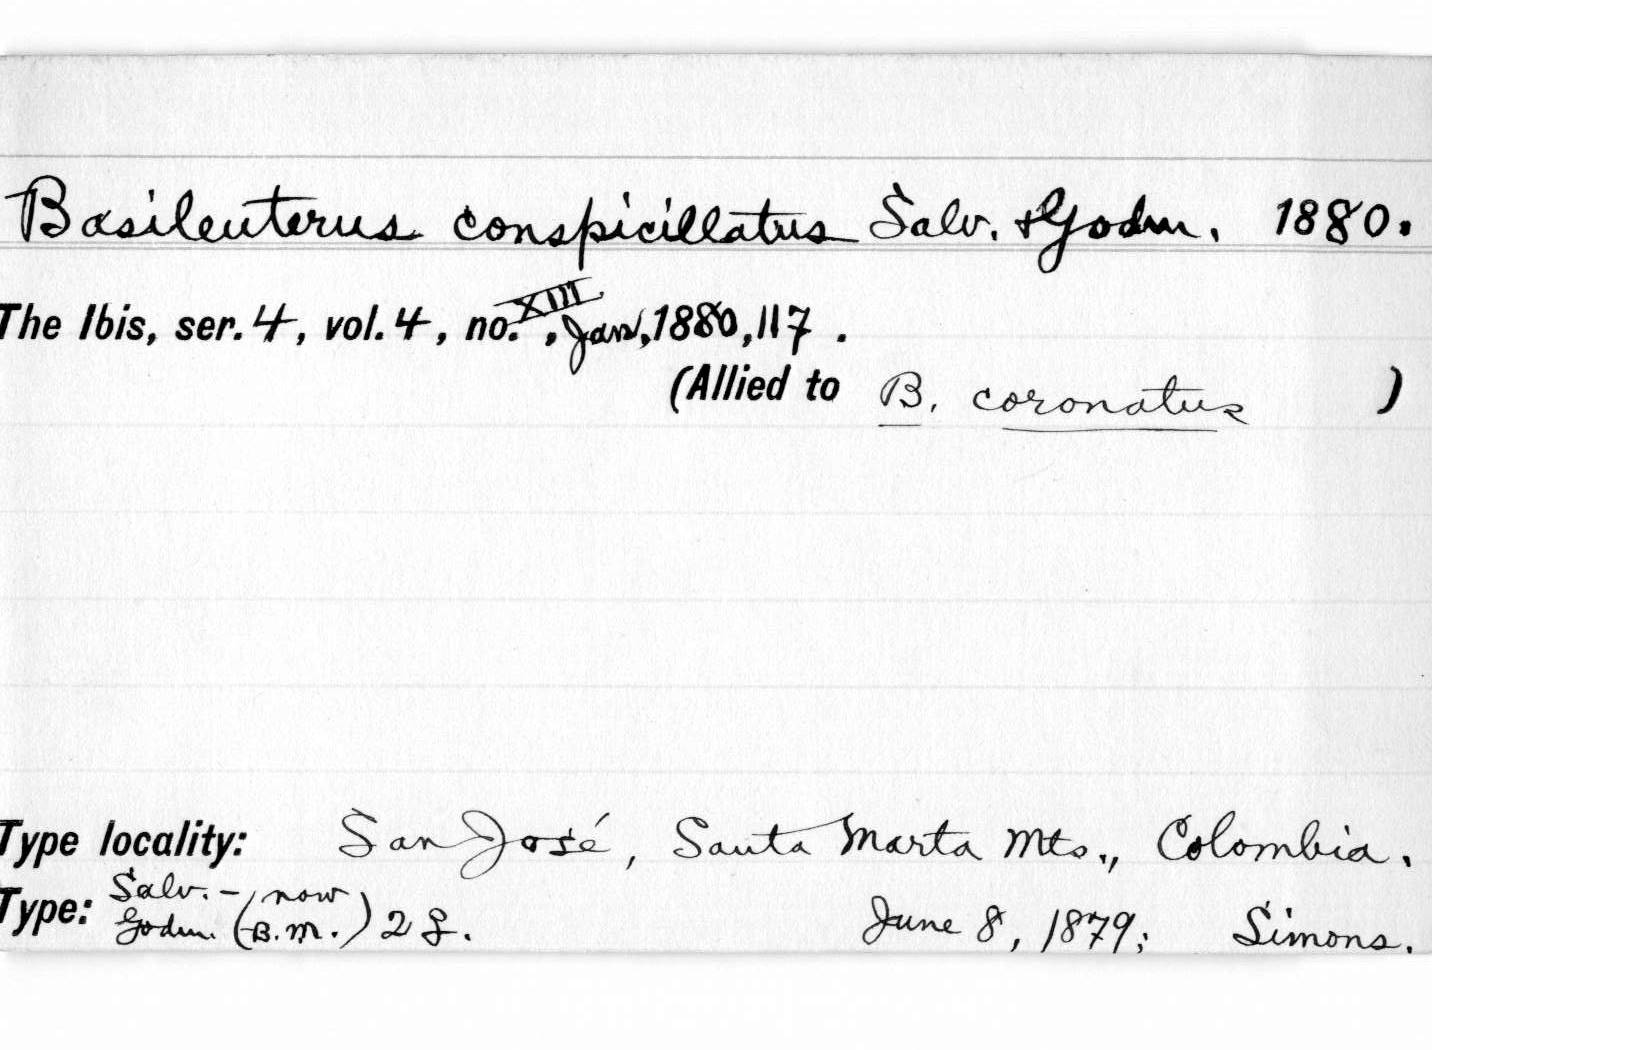 Basileuterus conspicillatus Salv. & Godm. 1880.
The Ibis, ser. 4, vol. 4, no. XIII, Jan, 1880, 117 .
(Allied to B. coronatus )
Type locality: San José, Santa Marta Mts., Colombia.
Type: Salv.-Godm. (now B.M.) 2 June 8, 1879; Simons.